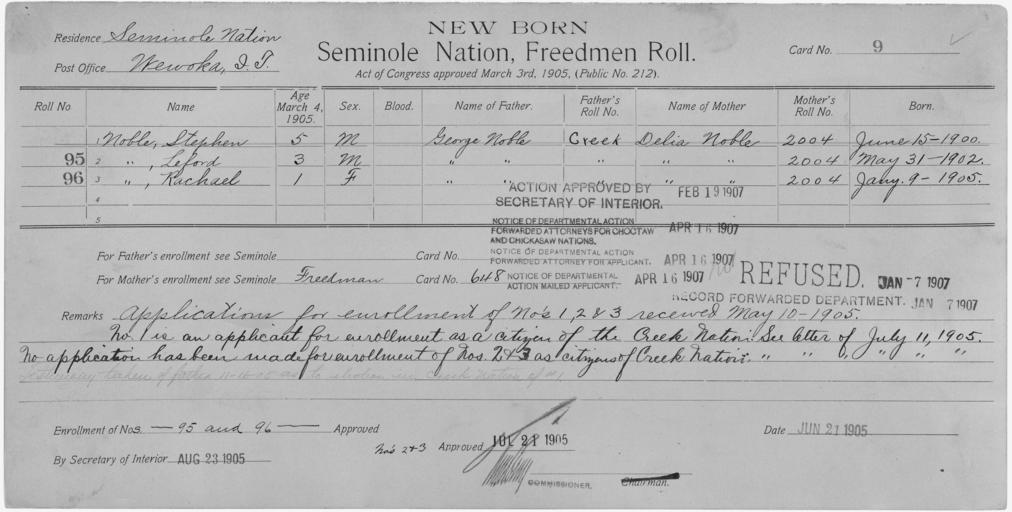 NEW BORN
Residence Seminole Nation
Seminole Nation, Freedmen Roll.
Card No. 9
Post Office Wewoka, I.T.
Act of Congress approved March 3rd, 1905, (Public No. 212).
Roll No Name Age March 4, 1905. Sex. Blood. Name of Father. Father's Roll No. Name of Mother Mother's Roll No. Born.
1 Noble, Stephen 5 M George Noble Creek Delia Noble 2004 June 15-1900.
95 2 " , Leford 3 M " " " " " 2004 May 31-1902.
96 3 " , Rachael 1 F " " " " 2004 Jany. 9-1905.
4
5
ACTION APPROVED BY SECRETARY OF INTERIOR. FEB 19 1907
NOTICE OF DEPARTMENTAL ACTION FORWARDED ATTORNEYS FOR CHOCTAW AND CHICKASAW NATIONS. APR 16 1907
For Father's enrollment see Seminole Card No.
NOTICE OF DEPARTMENTAL ACTION FORWARDED ATTORNEY FOR APPLICANT. APR 16 1907
For Mother's enrollment see Seminole Freedman Card No. 648
NOTICE OF DEPARTMENTAL ACTION MAILED APPLICANT. APR 16 1907
No REFUSED. JAN -7 1907
RECORD FORWARDED DEPARTMENT. JAN 7 1907
Remarks Applications for enrollment of No's 1, 2 & 3 received May 10-1905.
No. 1 is an applicant for enrollment as a citizen of the Creek Nation: See letter of July 11, 1905.
No application has been made for enrollment of Nos. 2 & 3 as citizens of Creek Nation: " " " " " "
Enrollment of Nos. — 95 and 96 — Approved
No's 2 & 3 Approved JUL 21 1905
Date JUN 21 1905
By Secretary of Interior AUG 23 1905
COMMISSIONER. Chairman.